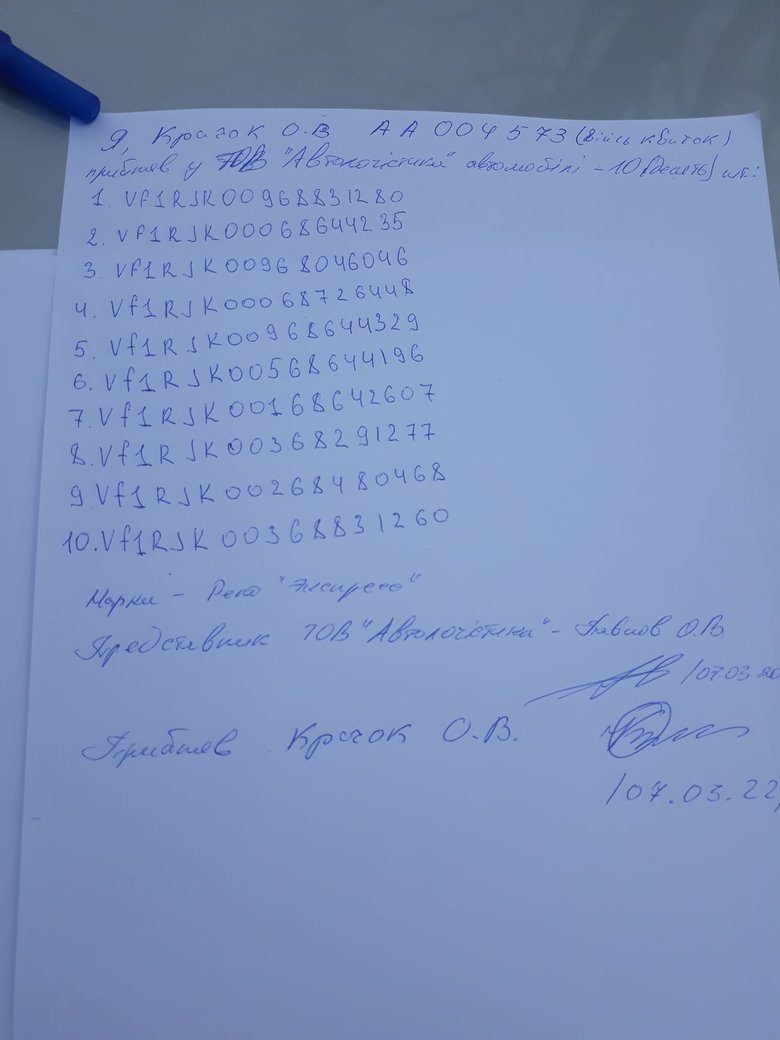 Я, Крачок О.В АА 004573 (військ квиток)
прийняв у ТОВ "Автологістика" автомобілі - 10 (десять) шт:
1. Vf1RJK00968831280
2. Vf1RJK00068644235
3. Vf1RJK00968046046
4. Vf1RJK00068726448
5. Vf1RJK00968644329
6. Vf1RJK00568644196
7. Vf1RJK00168642607
8. Vf1RJK00368291277
9 Vf1RJK00268480468
10. Vf1RJK00368831260
Марка - Рено "Експресс"
Представник ТОВ "Автологістика" - Павлов О.В.
/07.03.20
Прийняв Крачок О.В.
/07.03.22